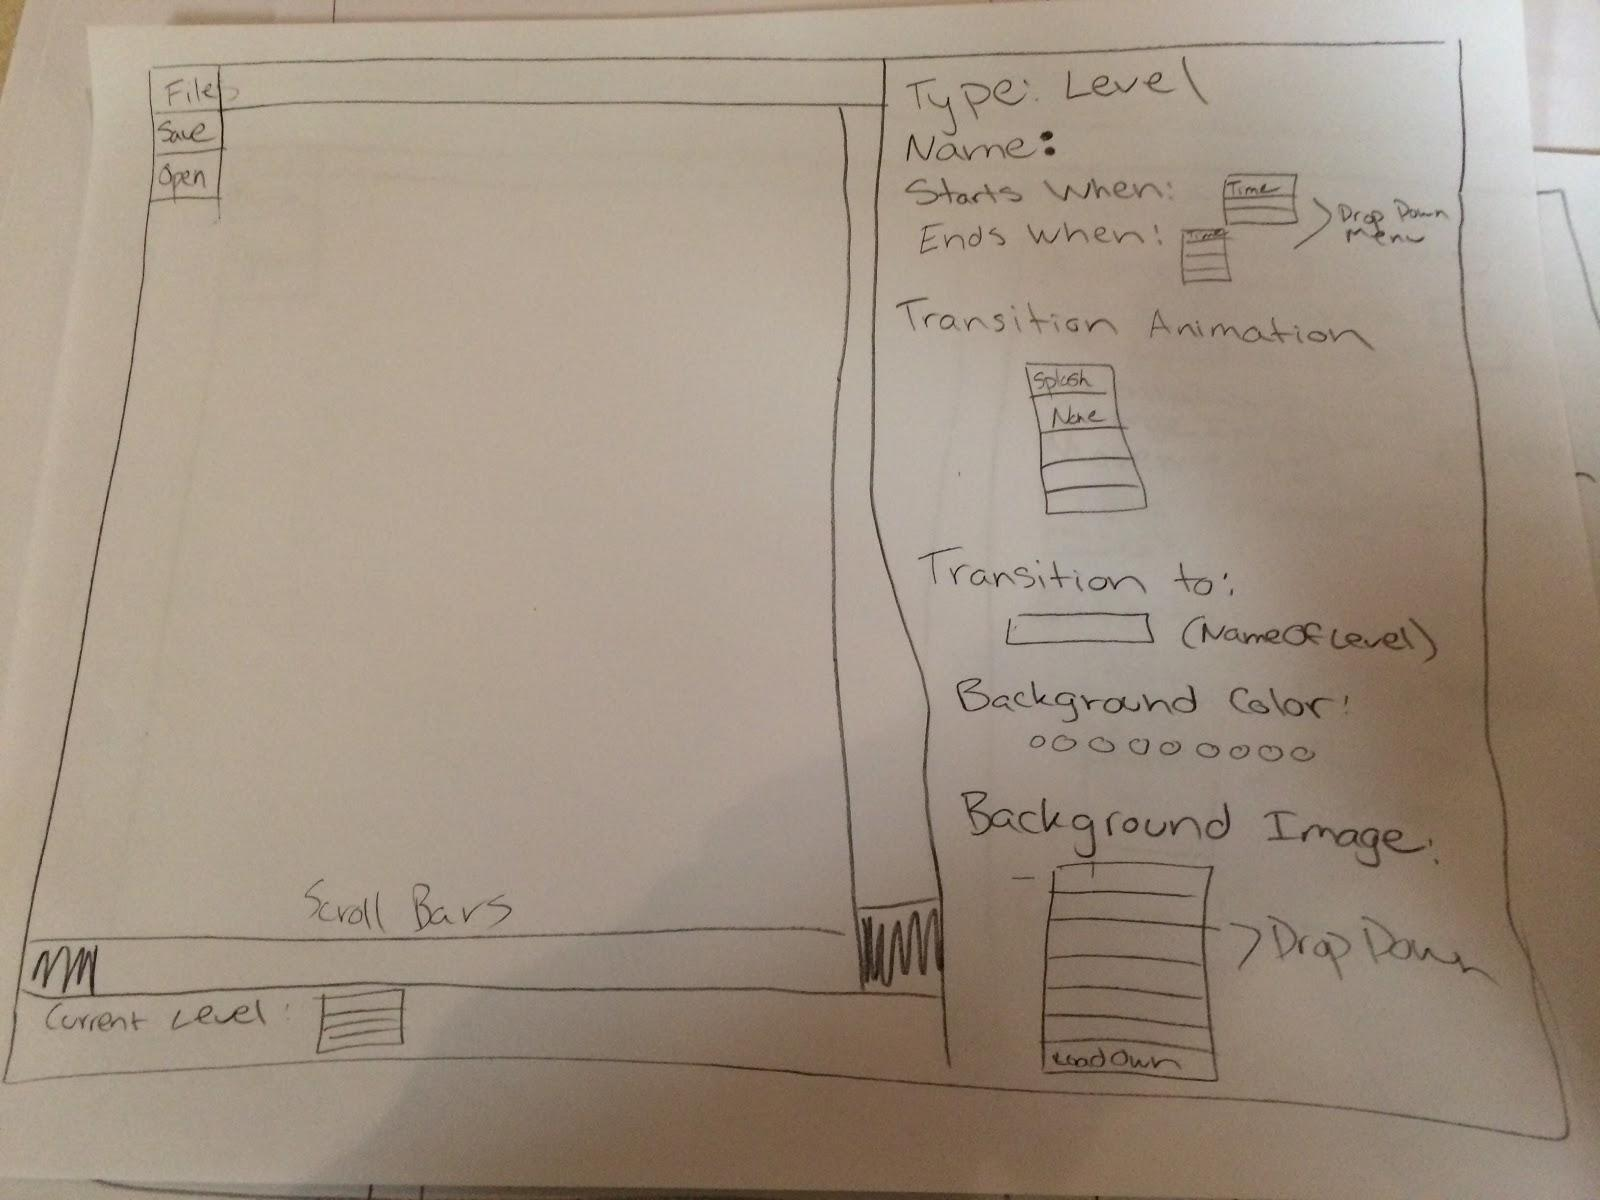 File
Save
Open
Scroll Bars
Current Level:
Type: Level
Name:
Starts When:
Time
Ends When:
Time
Drop Down
Menu
Transition Animation
Splash
None
Transition to:
(NameOfLevel)
Background Color:
Background Image:
Drop Down
Load Own